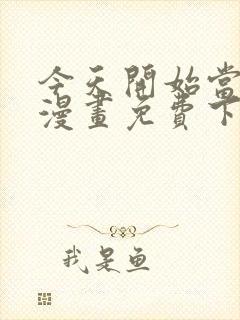 今天開始當
漫畫免費下
我是鱼